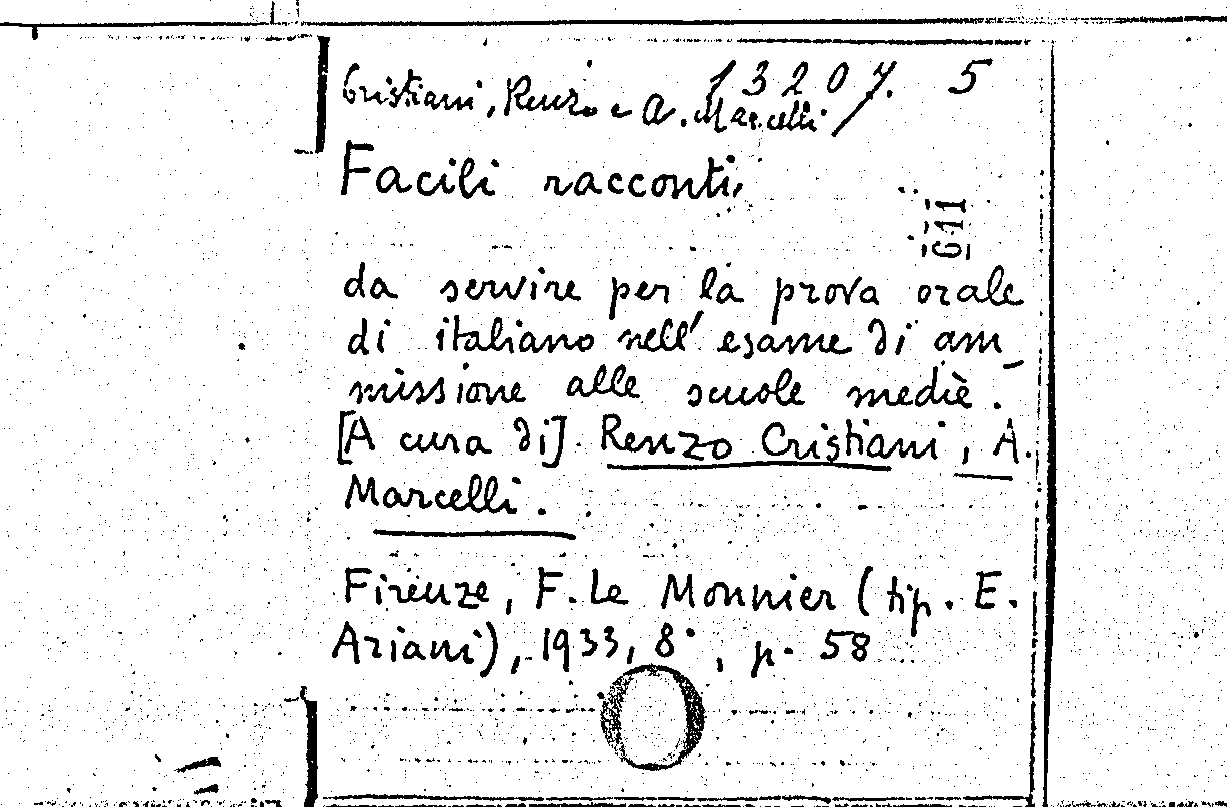 13207. 5
Cristiani, Renzo e A. Marcelli
Facili racconti,
611
da servire per la prova orale
di italiano nell' esame di am_
missione alle scuole medie.
[A cura di] Renzo Cristiani, A.
Marcelli.
Firenze, F. Le Monnier (tip. E.
Ariani), 1933, 8°, p. 58